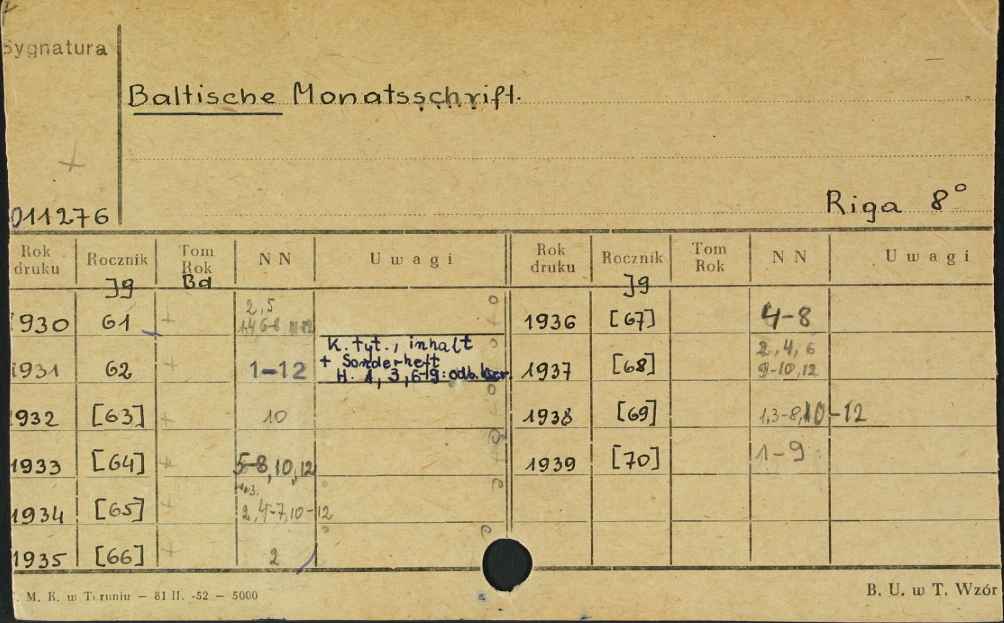 Sygnatura
Baltische Monatsschrift.
Riga 8°
011276
Rok druku Rocznik Tom Rok NN Uwagi Rok druku Rocznik Tom Rok NN Uwagi
Jg Bd Jg
1930 61 2,5 1936 [67] 4-8
K. tyt., inhalt
+ Sonderheft
H. 1, 3, 6-9: odb.
1931 62 1-12 1937 [68] 2,4,6
9-10,12
1932 [63] 10 1938 [69] 1,3-8,10-12
1933 [64] 5-8,10,12 1939 [70] 1-9
1934 [65] 2,4-7,10-12
1935 [66] 2
M. K. w Toruniu — 81 II. -52 — 5000
B. U. w T. Wzór